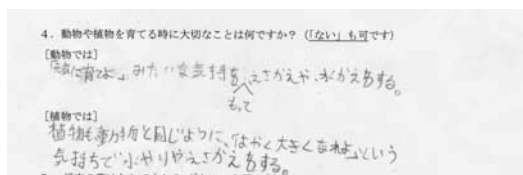 4．動物や植物を育てる時に大切なことは何ですか？（「ない」も可です）
[動物では]
「元気に育てよ。」みたいな気持を、えさがえや、水がえをする。
もって
[植物では]
植物も動物と同じように、「はやく大きくなれよ」という
気持ちで水やりやえさがえをする。